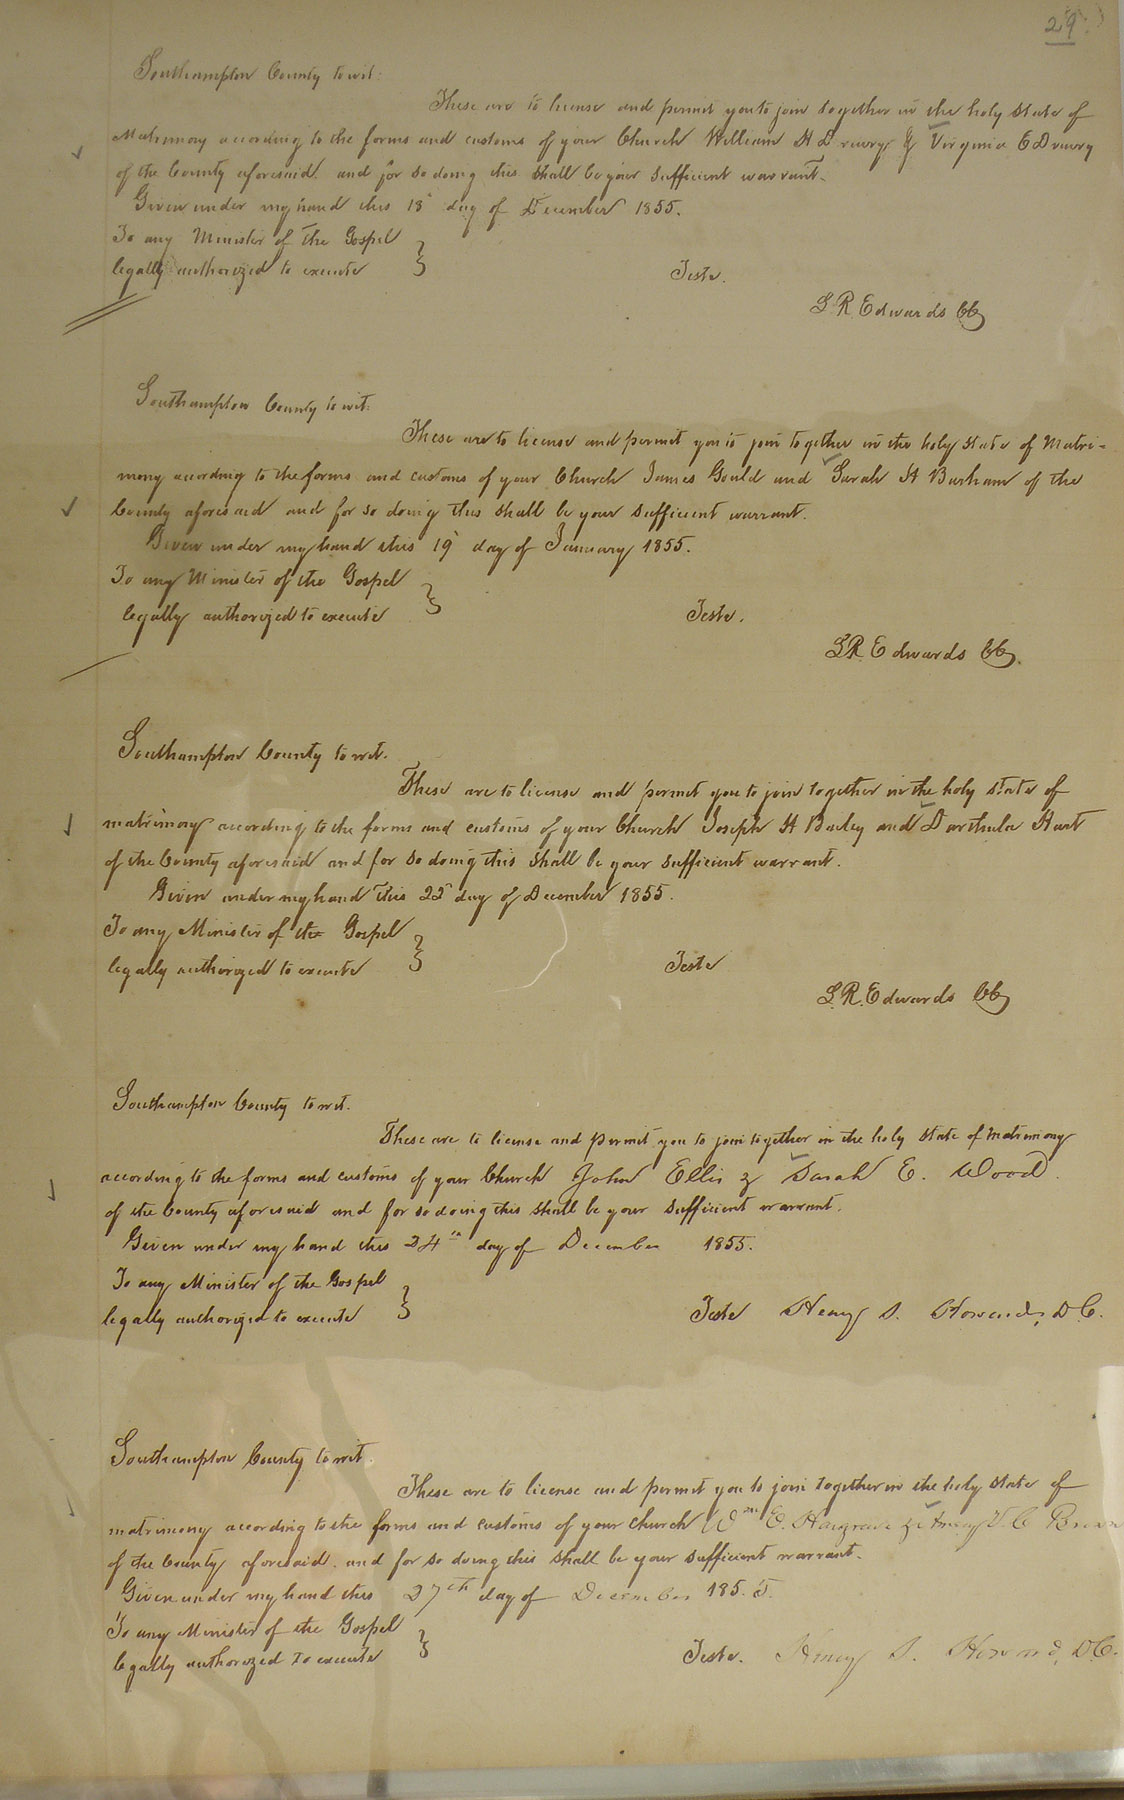 29
Southampton County to wit:
These are to license and permit you to join together in the holy state of
Matrimony according to the forms and customs of your Church William H Drewry & Virginia E Drewry
of the County aforesaid and for so doing this shall be your sufficient warrant.
Given under my hand this 18 day of December 1855.
To any Minister of the Gospel
legally authorized to execute
Teste.
L R Edwards CC
Southampton County to wit.
These are to license and permit you to join together in the holy state of Matri-
mony acording to the forms and customs of your Church James Gould and Sarah H Barham of the
County aforesaid and for so doing this shall be your sufficient warrant.
Given under my hand this 19 day of January 1855.
To any Minister of the Gospel
legally authorized to execute
Teste.
L R Edwards CC.
Southampton County to wit.
These are to license and permit you to join together in the holy state of
matrimony according to the forms and customs of your Church Joseph H Bailey and Darthula Hart
of the County aforesaid and for so doing this shall be your sufficient warrant.
Given under my hand this 22 day of December 1855.
To any Minister of the Gospel
legally authorized to execute
Teste
L. R. Edwards CC
Southampton County to wit.
These are to license and permit you to join together in the holy state of matrimony
according to the forms and customs of your Church John Ellis & Sarah E. Wood.
of the County aforesaid and for so doing this shall be your sufficient warrant.
Given under my hand this 24th day of December 1855.
To any Minister of the Gospel
legally authorized to execute
Teste Henry S. Howard, DC.
Southampton County to wit.
These are to license and permit you to join together in the holy state of
matrimony according to the forms and customs of your church Wm E. Hargrave &
of the County aforesaid. and for so doing this shall be your sufficient warrant.
Given under my hand this 27th day of December 1855.
To any Minister of the Gospel
legally authorized to execute
Teste. Henry S. Howard, DC.